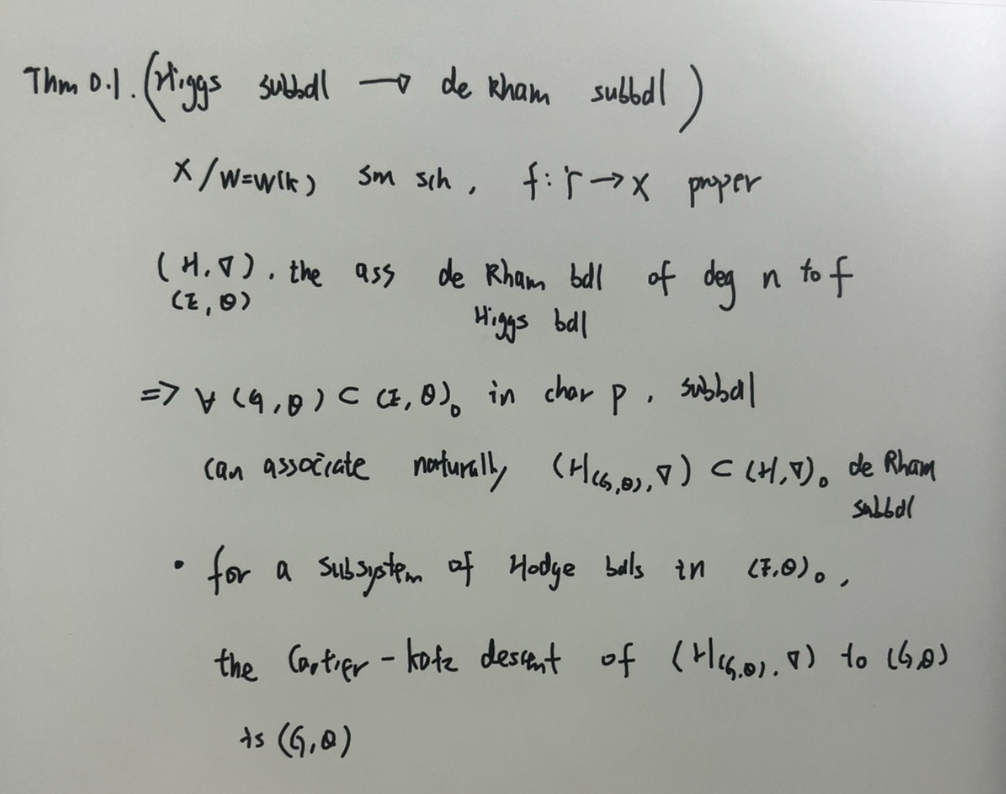 Thm 0.1. (Higgs subbdl → de Rham subbdl)
X/W=W(k) sm sch, f: Y→X proper
(H, ∇), the ass de Rham bdl of deg n to f
(E, θ) Higgs bdl
=> ∀ (G, θ) ⊂ (E, θ)₀ in char p, subbdl
can associate naturally (H(G,θ), ∇) ⊂ (H, ∇)₀ de Rham
subbdl
• for a subsystem of Hodge bdls in (E, θ)₀,
the Cartier-Katz descent of (H(G,θ), ∇) to (G, θ)
is (G, θ)